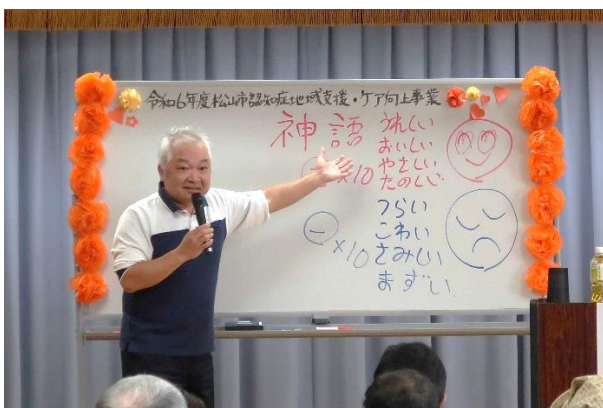 令和6年度松山市認知症地域支援・ケア向上事業
神語
うれしい
おいしい
やさしい
たのしい
×10
つらい
こわい
さみしい
まずい
⊖×10